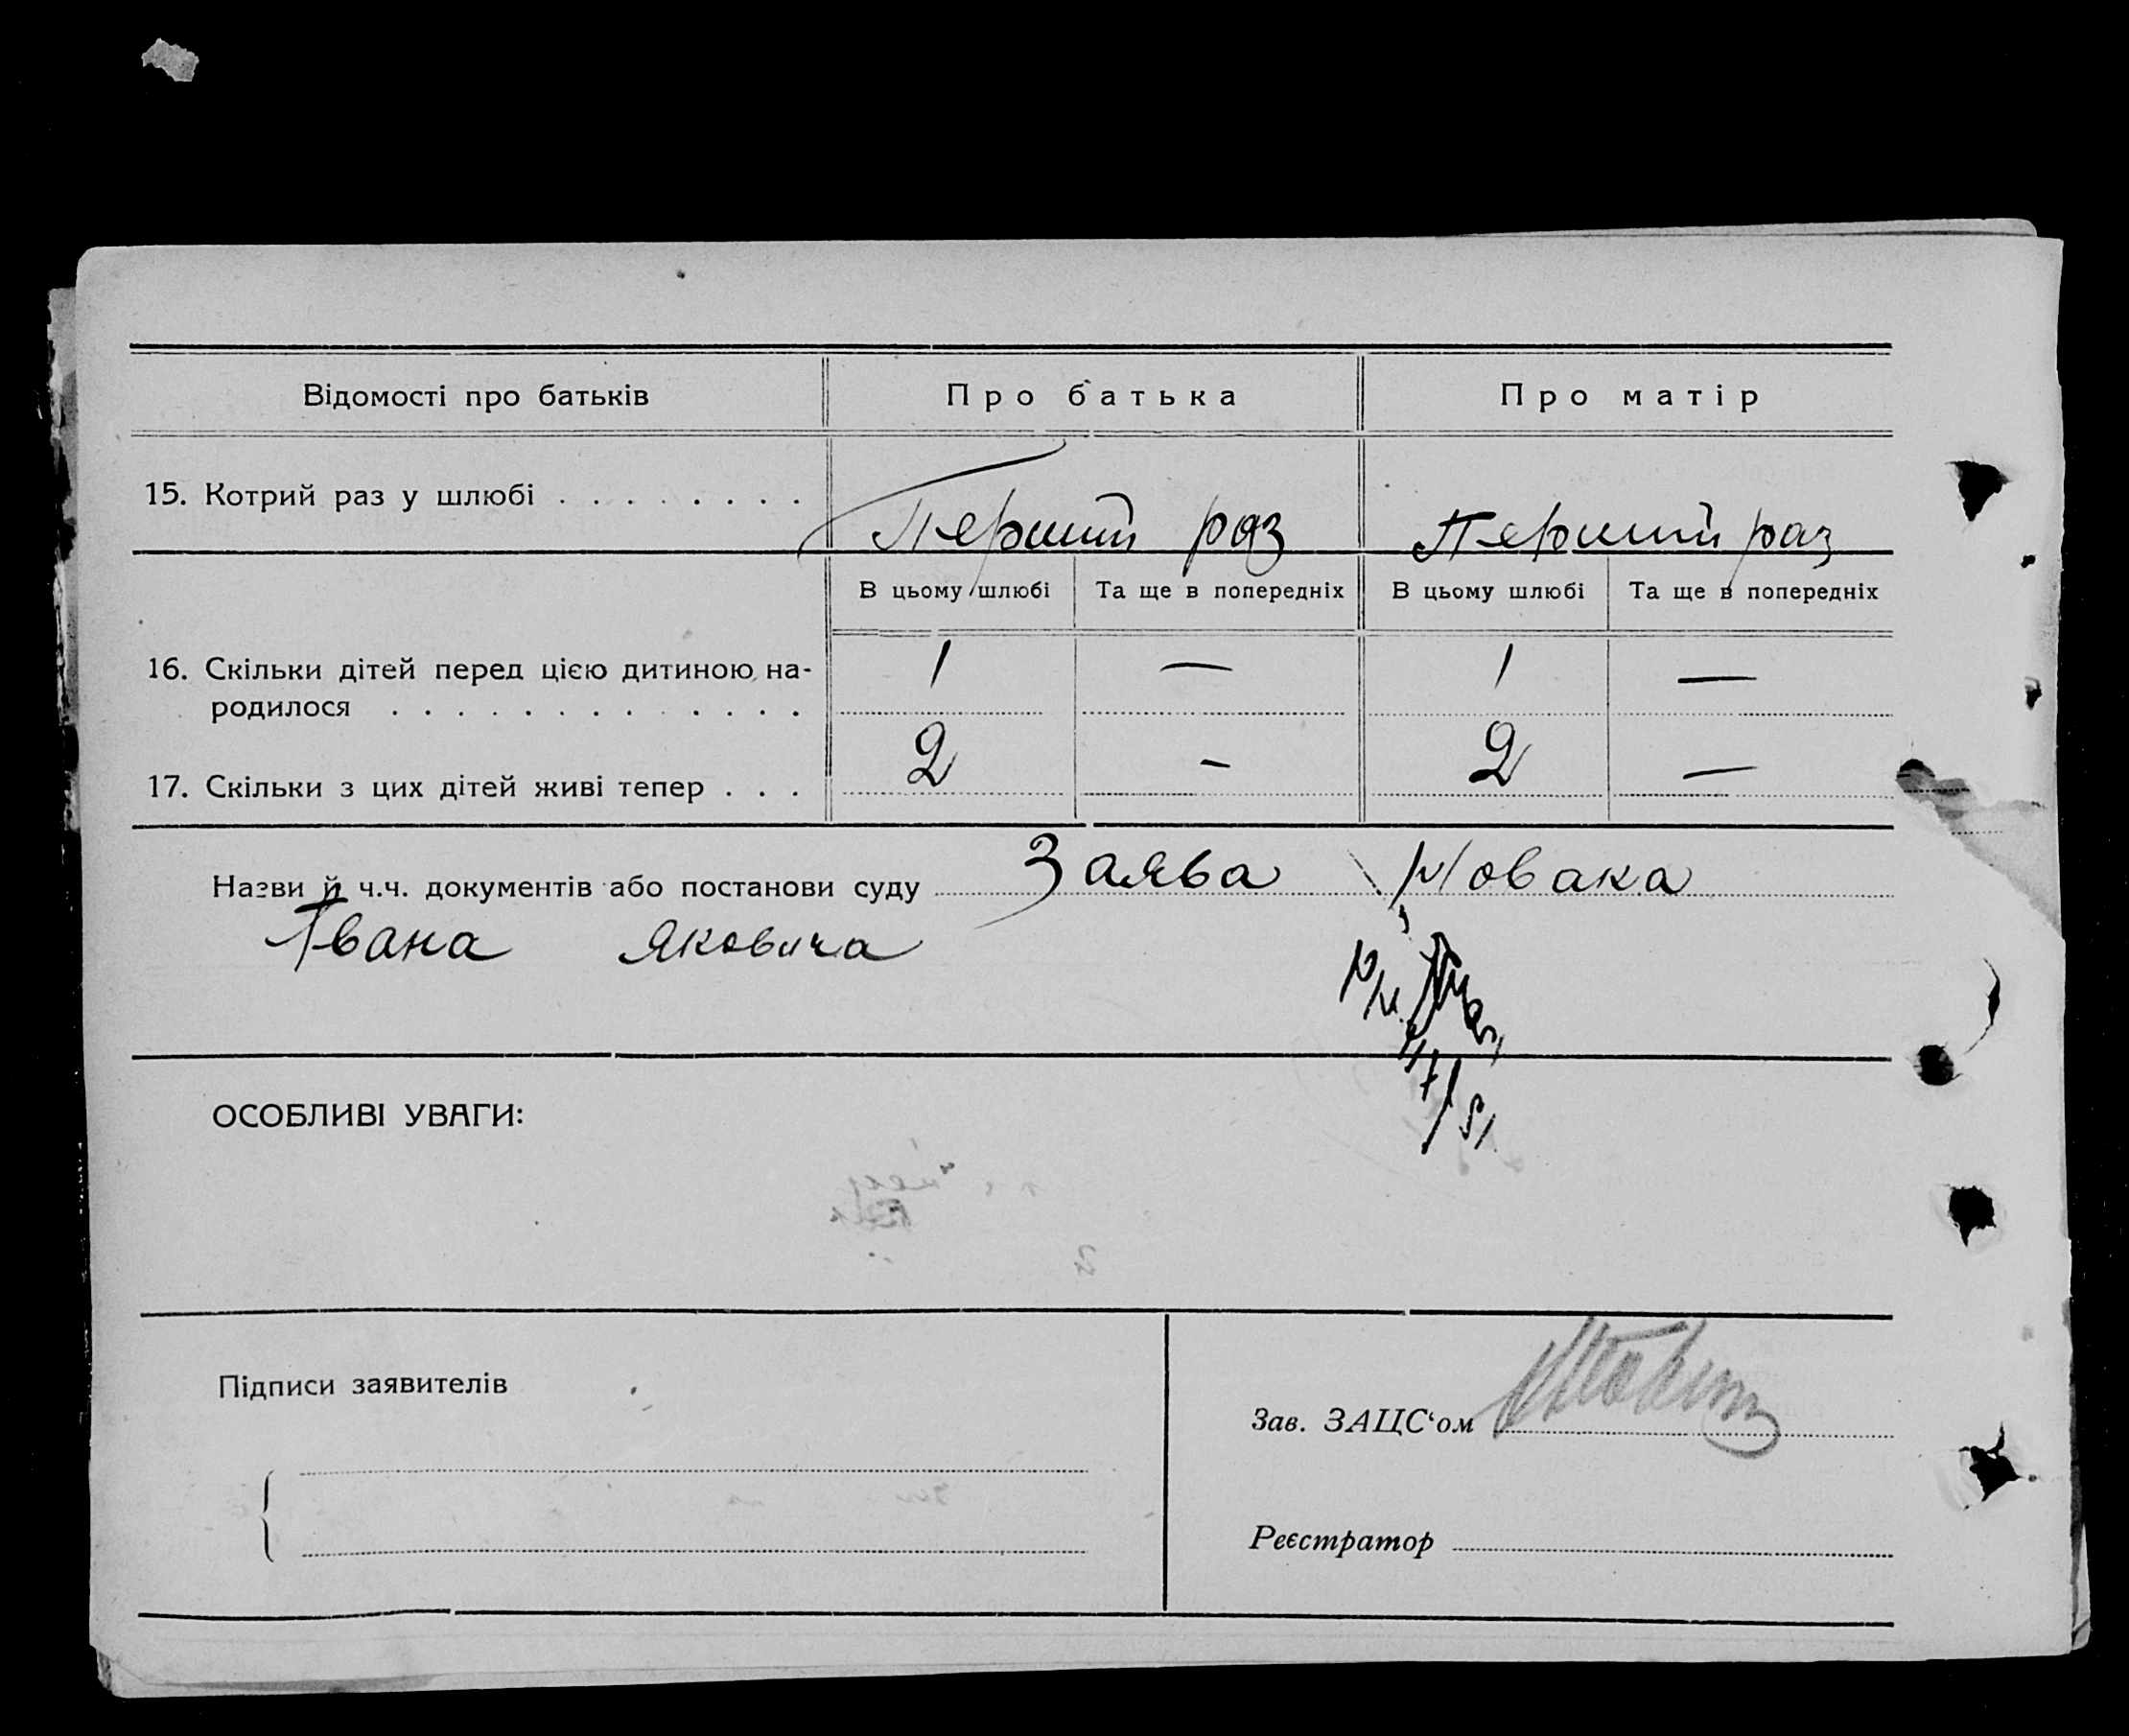 Відомості про батьків Про батька Про матір
15. Котрий раз у шлюбі . . . . . . . . Перший раз Перший раз
В цьому шлюбі Та ще в попередніх В цьому шлюбі Та ще в попередніх
16. Скільки дітей перед цією дитиною на-
родилося . . . . . . . . . . . . . 1 — 1 —
17. Скільки з цих дітей живі тепер . . . 2 — 2 —
Назви й ч.ч. документів або постанови суду Заява Новака
Івана Яковича
ОСОБЛИВІ УВАГИ:
Підписи заявителів
Зав. ЗАЦС‘ом
Реєстратор